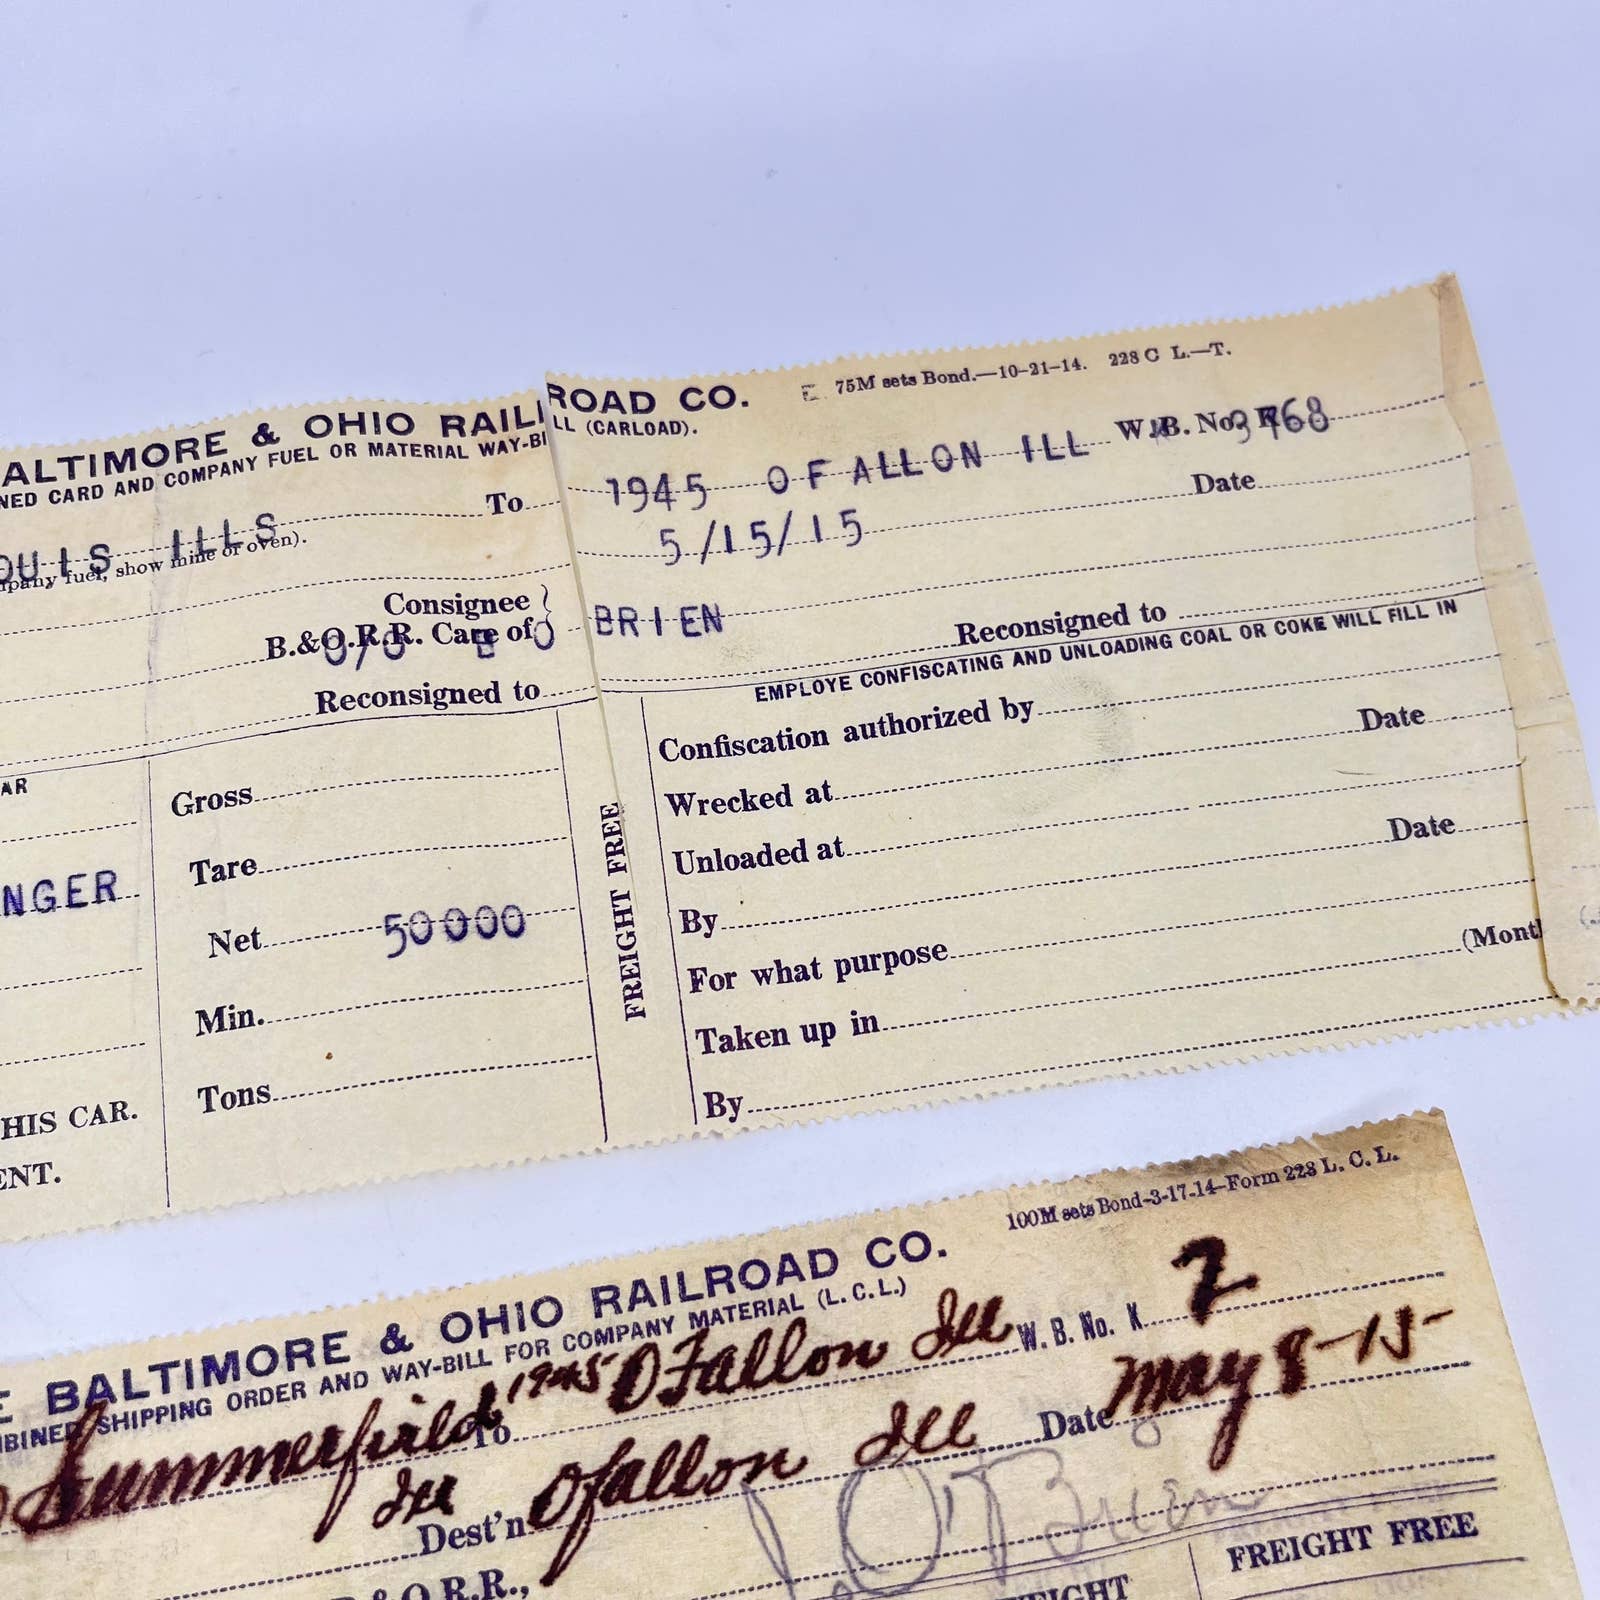 BALTIMORE & OHIO RAILROAD CO. 75M sets Bond.—10-21-14. 228 C L.—T.
NED CARD AND COMPANY FUEL OR MATERIAL WAY-BILL (CARLOAD).
To 1945 OFALLON ILL W.B. No.
OUIS ILLS 5/15/15 Date
mpany fuel, show mine or oven).
Consignee
B.&O.R.R. Care of O BRIEN
Reconsigned to
Reconsigned to
EMPLOYE CONFISCATING AND UNLOADING COAL OR COKE WILL FILL IN
AR
Gross
Confiscation authorized by
Date
Tare
Wrecked at
NGER
Net 50000
Unloaded at
Date
By
Min.
For what purpose
(Month
Taken up in
Tons
By
FREIGHT FREE
HIS CAR.
ENT.
100M sets Bond-3-17-14-Form 228 L. C. L.
E BALTIMORE & OHIO RAILROAD CO.
MBINED SHIPPING ORDER AND WAY-BILL FOR COMPANY MATERIAL (L.C.L.)
W. B. No. K 2
Summerfield Ill To 1945 OFallon Ill
Date May 8-15-
Dest'n Ofallon Ill
O'Brien
& O.R.R.,
FREIGHT FREE
EIGHT